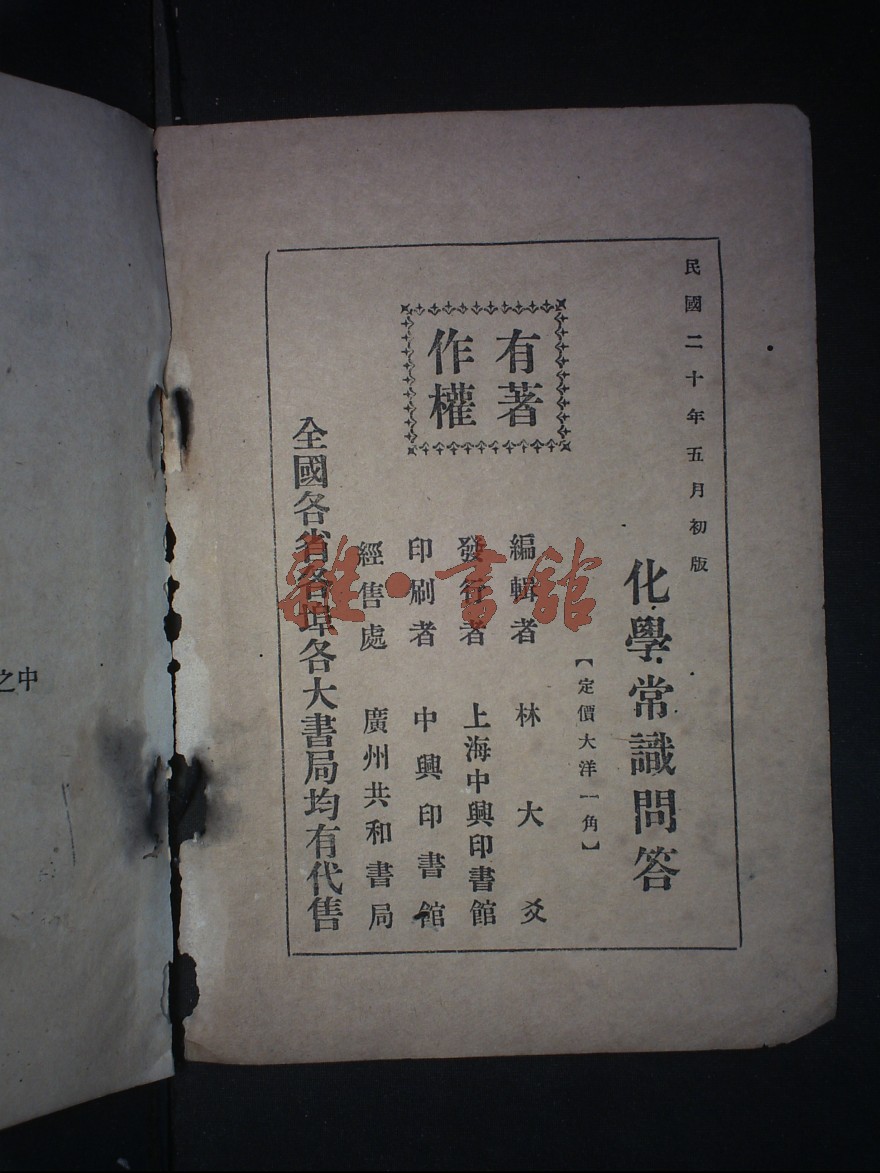 民國二十年五月初版
化學常識問答
【定價大洋一角】
編輯者 林大爻
發行者 上海中興印書館
印刷者 中興印書館
經售處 廣州共和書局
全國各省各埠各大書局均有代售
有著作權
雜·書館
之中